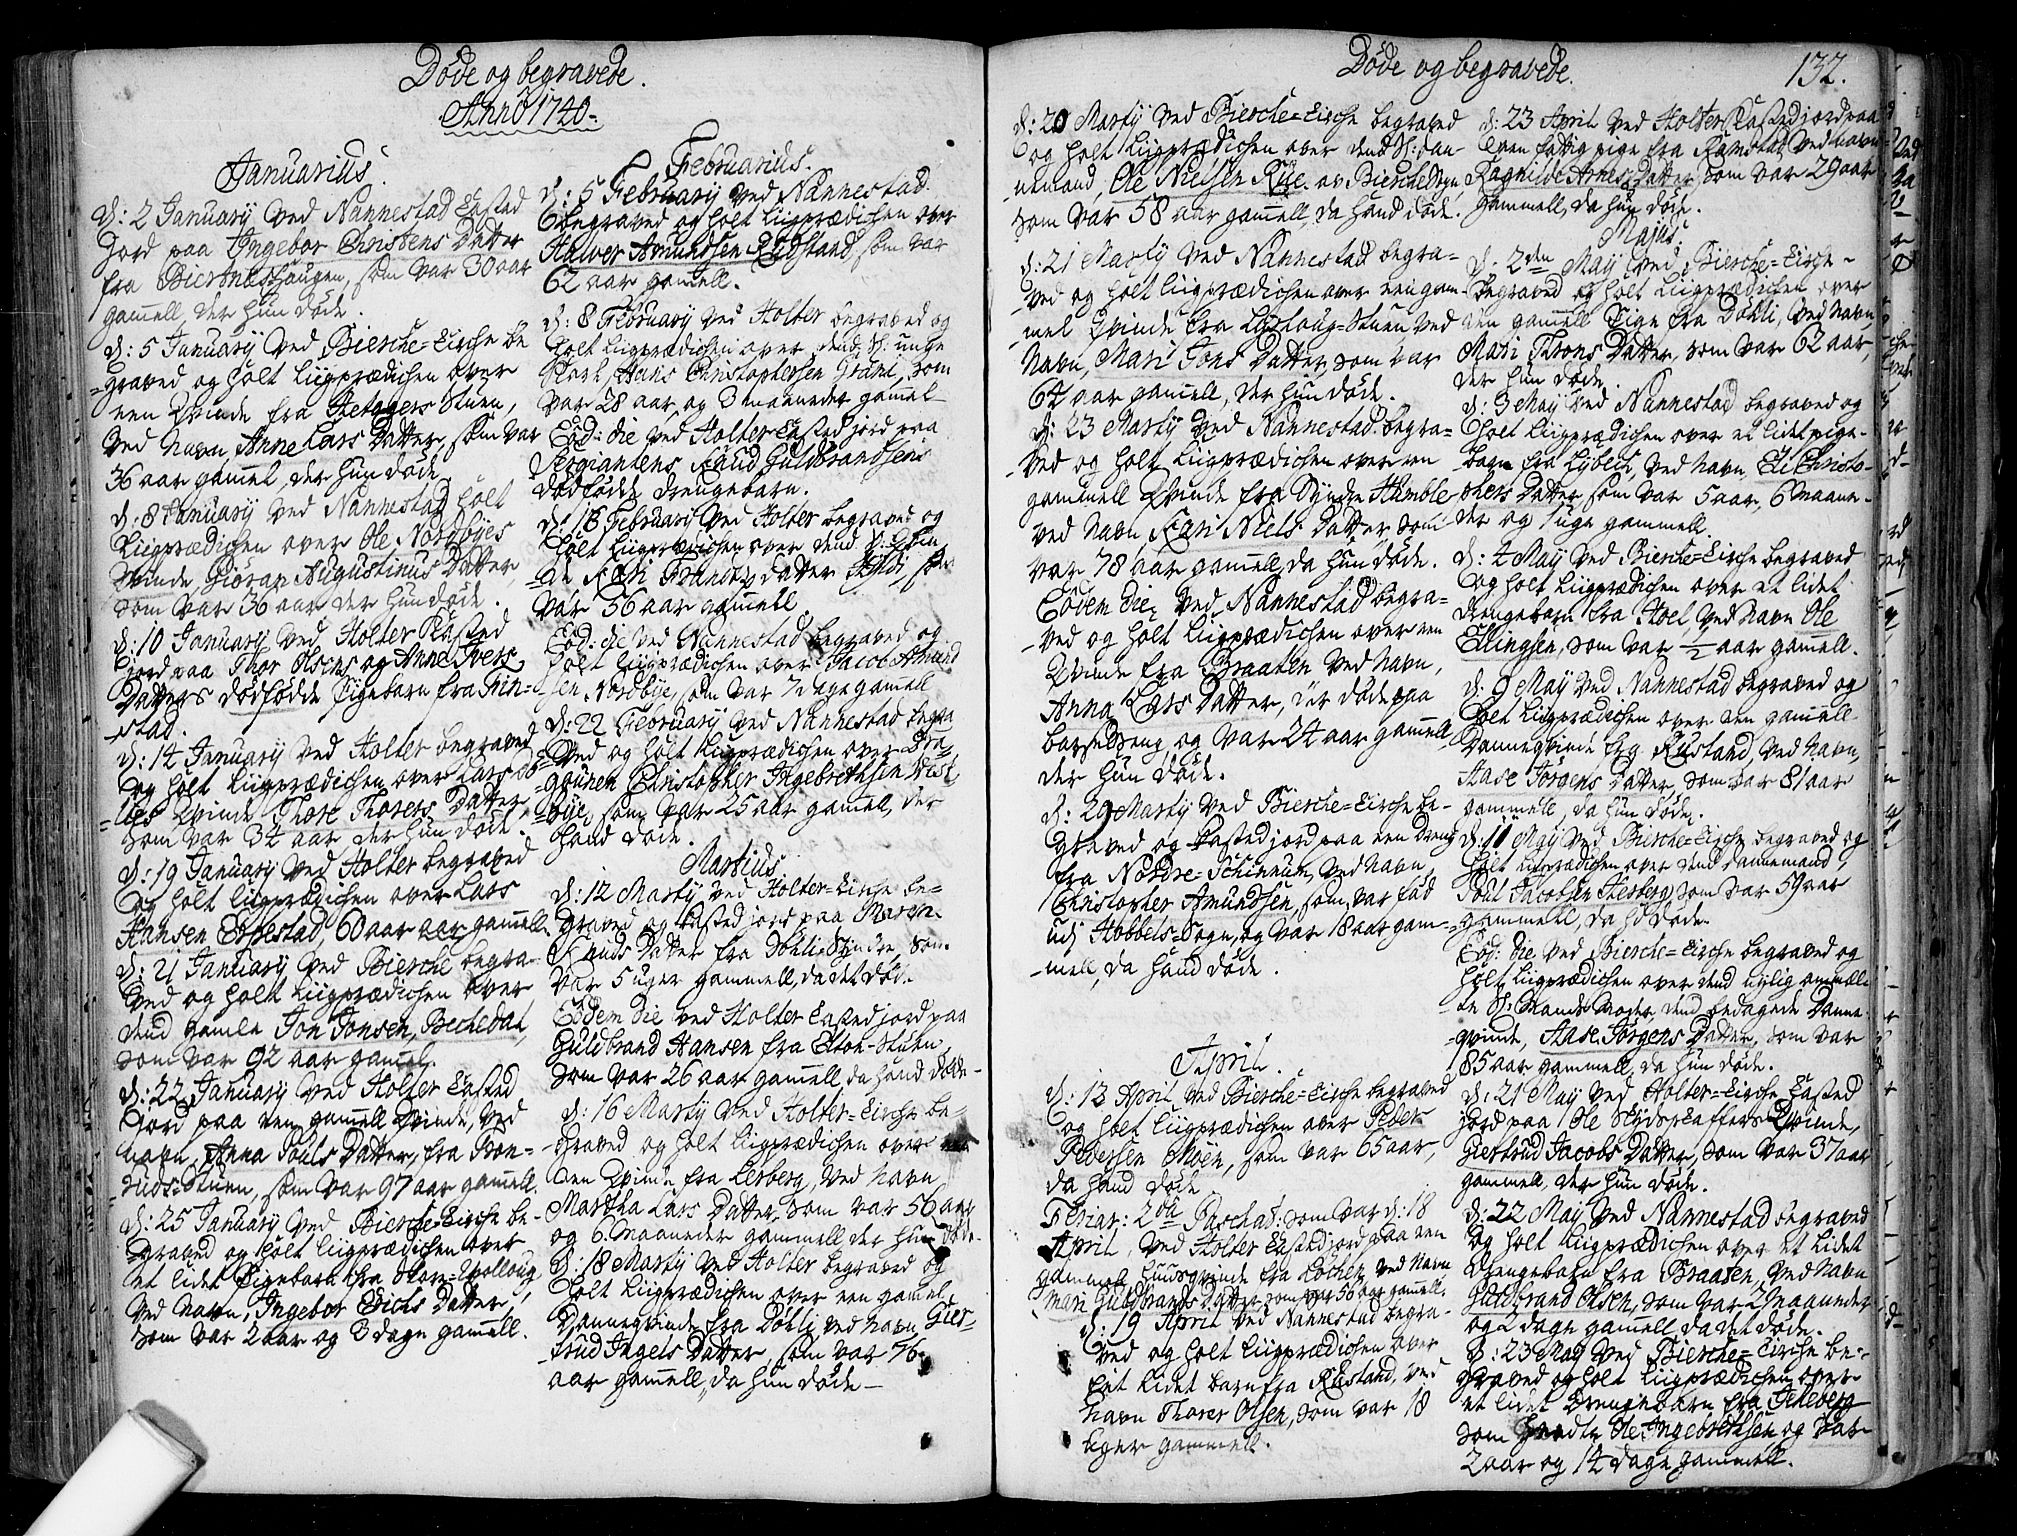 Døde og begravede.
Anno 1740.
Januarius.
d: 2 January ved Nannestad Casted
Jord paa Ingebor Christens Datter
fra Hougen, som var 30 aar
gam̃ell, der hun døde.
d: 5 January ved Biercke-Kirche be
graved og holt Liigprædichen over
een Qvinde fra Stuen,
ved Navn, Anne Lars Datter, som var
36 aar gam̃el, der hun døde.
d: 8 January ved Nannestad holt
Liigprædichen over Ole Nordbyes
Qvinde Giøran Augustinus Datter
som var 36 aar der hun døde.
d: 10 January ved Holter Kasted
jord paa Thor Olsens og Anne Ivers
Datters dødfødde Pigebarn fra Frin-
-stad.
d: 14 January ved Holter begraved
og holt Liigprædichen over Lars
Qvinde Thore Thorers Datter,
som var 34 aar der hun døde.
d: 19 January ved Holter begraved
og holt Liigprædichen over Lars
Hansen Eppestad, 60 aar aar gam̃ell.
d: 21 January ved Biercke begra-
ved og holt Liigprædichen over
dend gamle Jon Jonsen, Beckedal,
som var 92 aar gam̃el.
d: 22 January ved Holter Casted
Jord paa een gam̃ell Qvinde, ved
navn, Anna Pouls Datter, fra
Stuen, som var 97 aar gam̃ell.
d: 25 January ved Biercke-Kirche be-
graved og holt Liigprædichen over
et lidet Pigebarn fra Store-
ved Navn, Ingebor Erichs Datter,
som var 2 aar og 3 dage gam̃ell.
Februarius.
d: 5 February ved Nannestad
begraved og holt Liigprædichen over
Halvor Amundsen Rustand, som var
62 aar gam̃ell.
d: 8 February ved Holter begraved og
holt Liigprædichen over dend Sl: unge
Karl Hans Christophersen Gram, som
var 28 aar og 3 maaneder gam̃el
Eod: die ved Holter Casted jord paa
Sergiantens Knud Guldbrandsens
dødfødde drengebarn.
d: 18 February ved Holter begraved og
holt Liigprædichen over dend Sl: Qvin
de Kari Brandts Datter
var 56 aar gam̃ell.
Eod: die ved Nannestad begraved og
holt Liigprædichen over Jacob Amund
sen Nordbye, som var 7 dage gam̃ell
d: 22 February ved Nannestad begra
ved og holt Liigprædichen over Dra-
gounen Christopher Ingebrethsen
bye, som var 25 aar gam̃ell, der
hand døde.
Martius
d: 12 Marty ved Holter-Kirche be-
graved og Casted jord paa Maren
Knuds Datter fra Døhlie Syndre, som
var 5 uger gam̃ell, da det døde
Eodem die ved Holter Casted jord paa
Guldbrand Hansen fra Elton-Stuen,
som var 26 aar gam̃ell, da hand døde-
d: 16 Marty ved Holter-Kirche be-
graved og holt Liigprædichen over
een Qvinde fra Lerberg, ved Navn
Martha Lars Datter, som var 56 aar
og 6 maaneder gam̃ell der hun døde.
d: 18 Marty ved Holter begraved og
holt Liigprædichen over een gam̃el
Danneqvinde fra Døhli, ved Navn Gier-
-trud Ingels Datter, som var 76
aar gam̃ell, da hun døde-
Døde og begravede.
132.
d: 20 Marty ved Biercke-Kirche begraved
og holt Liigprædichen over dend Sl: Dan-
nemand, Ole Nielsen Rüe. av Biercke Sogn,
som var 58 aar gam̃ell, da hand døde.
d: 21 Marty ved Nannestad begra-
ved og holt Liigprædichen over een gam-
mel Qvinde fra Stuen ved
Navn, Mari Jons Datter, som var
64 aar gam̃ell, der hun døde.
d: 23 Marty ved Nannestad begra-
ved og holt Liigprædichen over een
gammell Qvinde fra Syndre Humble
ved Navn, Kari Niels Datter som
var 78 aar gam̃ell, da hun døde.
Eodem die, ved Nannestad begra-
ved og holt Liigprædichen over een
Qvinde fra Braaten, ved Navn,
Anna Lars Datter, der døde paa
barselseng, og var 24 aar gam̃ell,
der hun døde.
d: 29 Marty ved Biercke-Kirche be-
graved og Casted jord paa een dreng
fra Nordre-Schinnum, ved Navn,
Christopher Amundsen, som var fød
udj Hobbøls-Sogn, og var 18 aar gam-
-mell, da hand døde.
April.
d: 13 April ved Biercke-Kirche begraved
og holt Liigprædichen over Peder
Pedersen Moen, som var 65 aar,
da hand døde
Feriar: 2da Paschat: som var d: 18
April, ved Holter Casted jord paa een
gammel Huusqvinde fra Løchen ved Navn,
Mari Guldbrands Datter som var 50 aar gam̃ell.
d: 19 April ved Nannestad begra-
ved og holt Liigprædichen over
Eet lidet barn fra Rustand, ved
Navn Thorer Olsen, som var 18
Uger gam̃ell.
d: 23 April ved Holter Kasted jord paa
Een fattig pige fra Ramstad, ved Navn
Ragnilde Arnes Datter, som var 29 aar
gam̃ell, da hun døde.
Majus.
d: 2den May ved Biercke-Kirche
begraved og holt Liigprædichen over
een gam̃ell Pige fra Døhli, ved Navn,
Mari Throns Datter, som var 62 aar,
der hun døde.
d: 3 May ved Nannestad begraved og
holt Liigprædichen over et lidet pige-
-barn fra Lybeck, ved Navn, Eli Christo-
phers Datter, som var 5 aar, 6 Maane-
der og 1 uge gammell.
d: 4 May ved Biercke-Kirche begraved
og holt Liigprædichen over et lidet
drengebarn fra Hoel, ved Navn Ole
Ellingsen, som var ½ aar gam̃ell.
d: 9 May ved Nannestad begraved og
holt Liigprædichen over een gam̃ell
Danneqvinde fra Rustand, ved Navn,
Aase Jørgens Datter, som var 81 aar
gam̃ell, da hun døde.
d: 11 May ved Biercke-Kirche begraved og
holt Liigprædichen over dend Dannemand,
Poul Jacobsen som var 59 aar
gam̃ell, da hd døde.
Eod: die ved Biercke-Kirche begraved og
holt Liigprædichen over dend nylig anmel-
te Sl: Mands Moder, dend bedagede Danne-
-qvinde, Aase Jørgens Datter, som var
85 aar gam̃ell, da hun døde.
d: 21 May ved Holter-Kirche Casted
jord paa Ole Skydskaffers Qvinde,
Giertrud Jacobs Datter, som var 37 aar
gam̃ell, der hun døde.
d: 22 May ved Nannestad begraved
og holt Liigprædichen over et lidet
drengebarn fra Braaten, ved Navn
Guldbrand Olsen, som var 2 maaneder
og 2 dage gam̃ell, da det døde.
d: 23 May ved Biercke-Kirche be-
graved og holt Liigprædichen over
et lidet drengebarn fra
som hædte Ole Ingebrethsen og var
2 aar og 14 dage gammell.